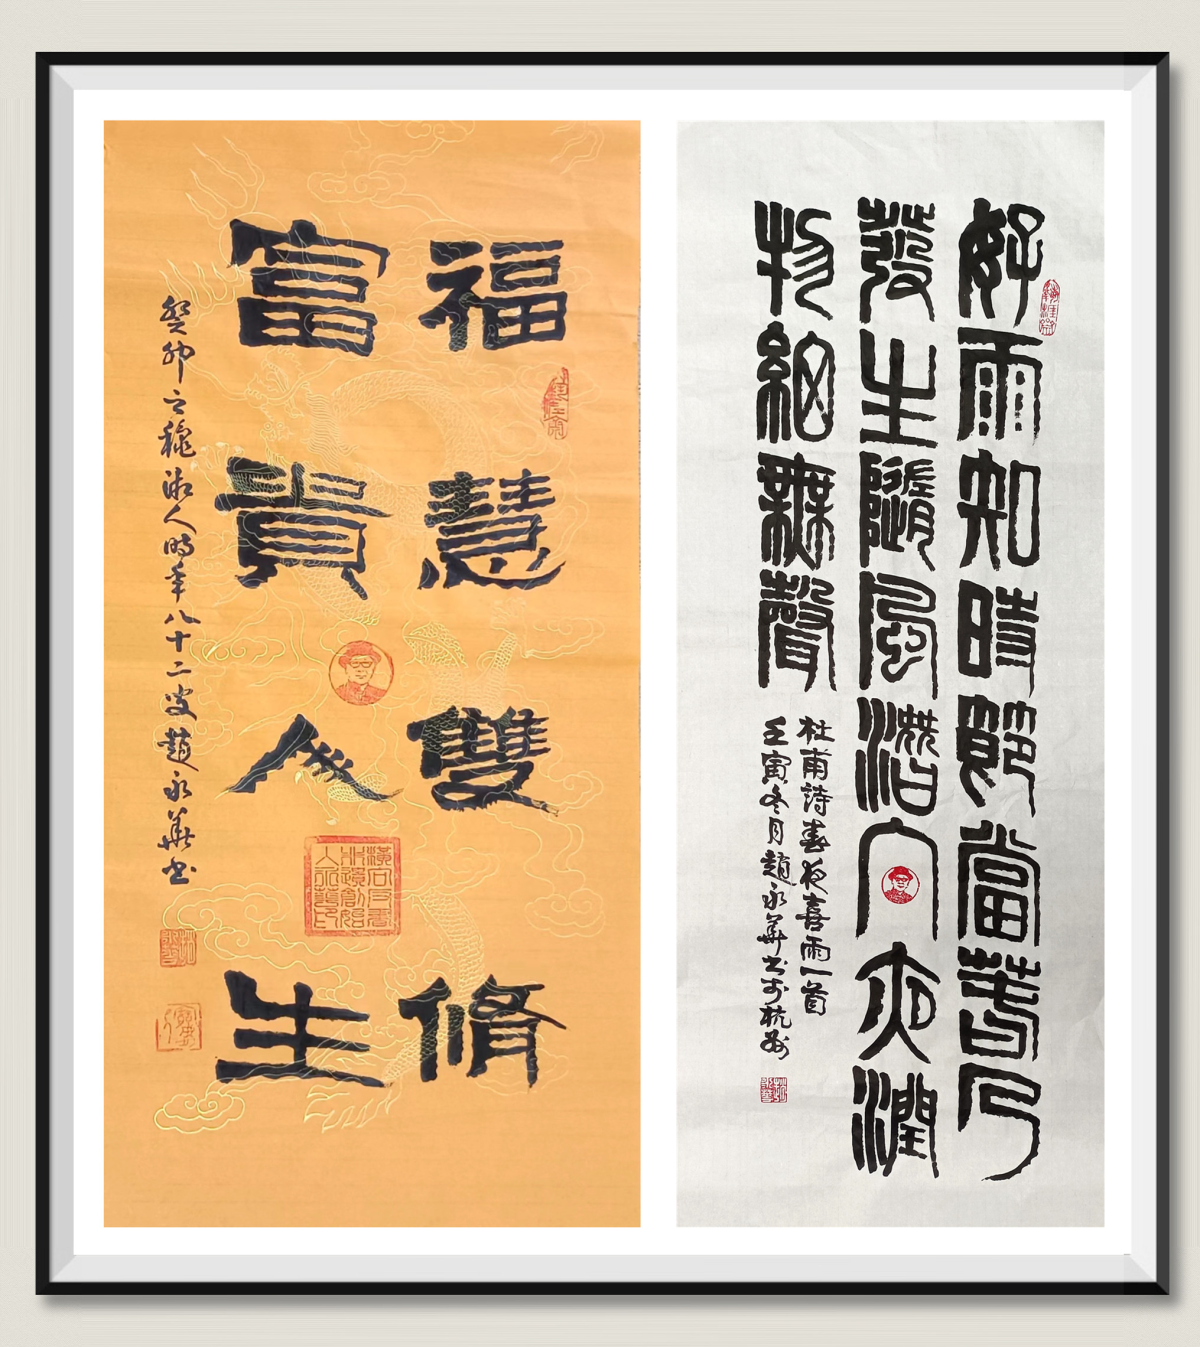 好雨知時節當春乃
發生隨風潛入夜潤
物細無聲
杜甫詩春夜喜雨一首
壬寅冬月趙永華书于杭州
福慧雙脩
富貴人生
癸卯之穐人時年八十二叟趙永華书